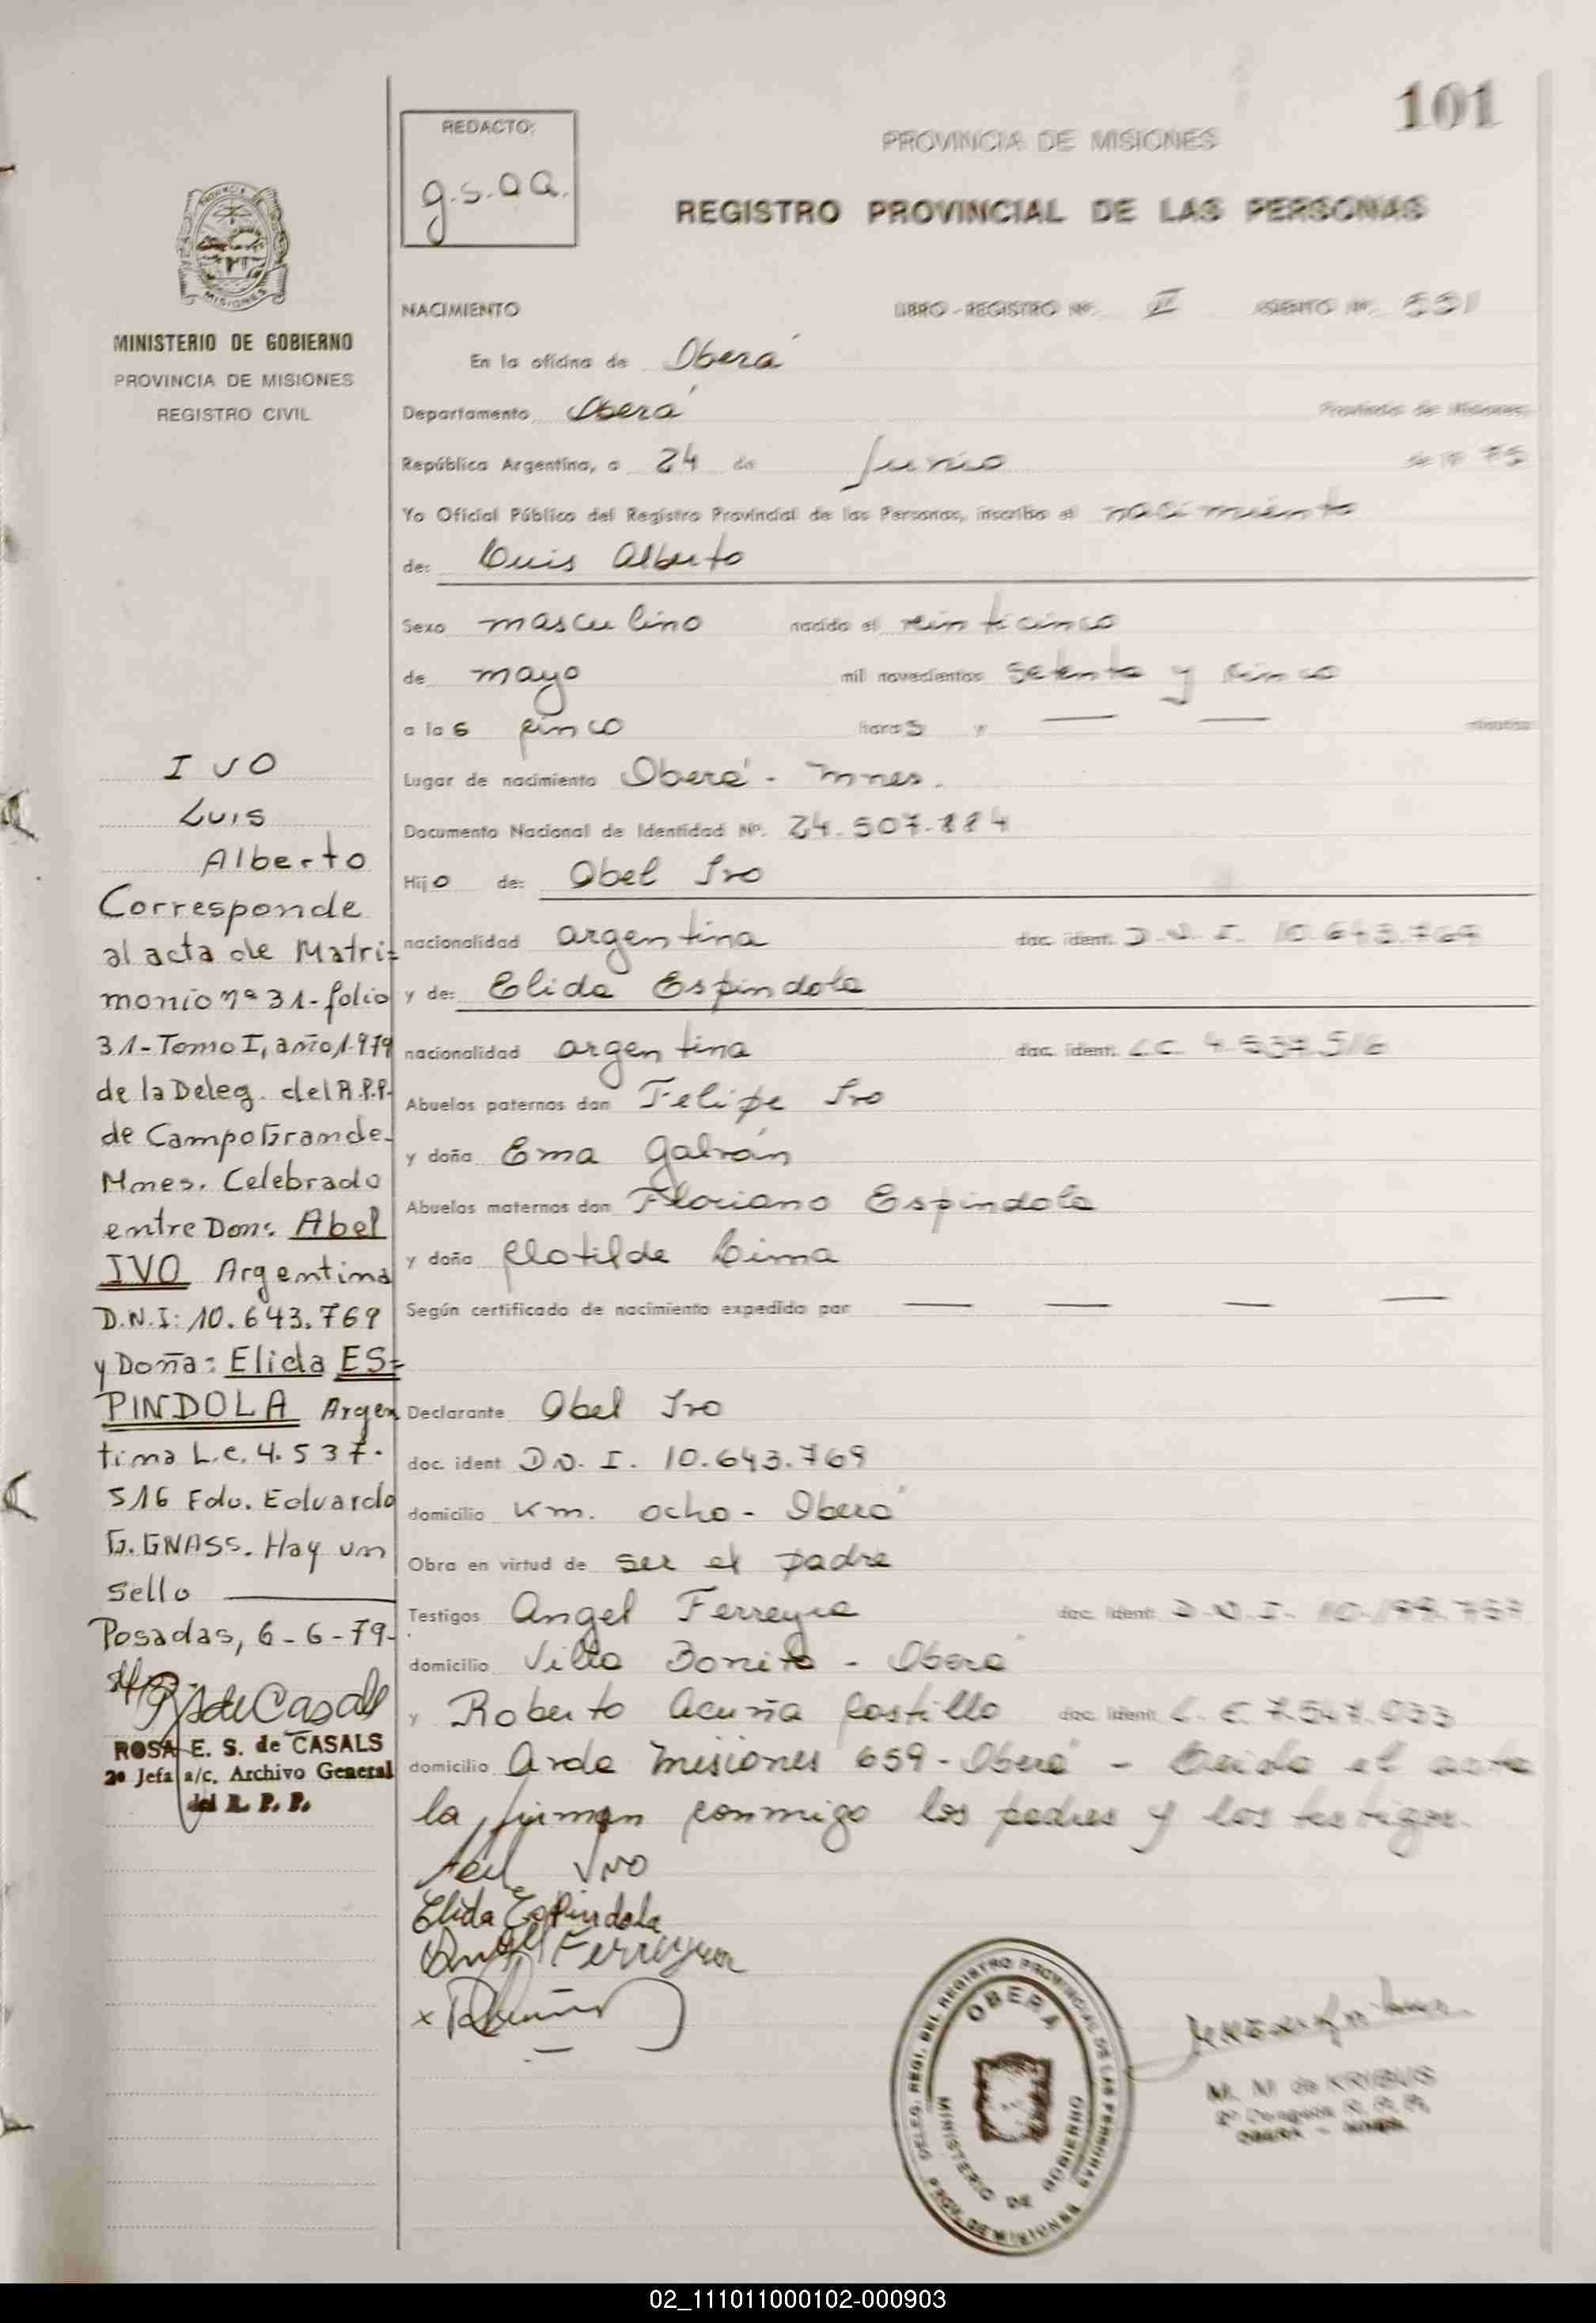 101
REDACTO:
g.s.a a.
PROVINCIA DE MISIONES
REGISTRO PROVINCIAL DE LAS PERSONAS
MINISTERIO DE GOBIERNO
PROVINCIA DE MISIONES
REGISTRO CIVIL
NACIMIENTO LIBRO - REGISTRO Nº. II ASIENTO Nº. 551
En la oficina de Oberá
Departamento Oberá Provincia de Misiones,
República Argentina, a 24 de Junio de 19 75
Yo Oficial Público del Registro Provincial de las Personas, inscribo el nacimiento
de: Luis Alberto
Sexo masculino nacido el veinticinco
de mayo mil novecientos setenta y cinco
a las cinco horas y — — minutos
Lugar de nacimiento Oberá - Mnes.
Documento Nacional de Identidad Nº. 24.507.884
Hijo de: Abel Ivo
nacionalidad argentina doc. ident. D.N.I. 10.643.769
y de: Elida Espindola
nacionalidad argentina doc. ident. L.C. 4.537.516
Abuelos paternos don Felipe Ivo
y doña Ema Galván
Abuelos maternos don Floriano Espindola
y doña Clotilde Lima
Según certificado de nacimiento expedido por — — — —
Declarante Abel Ivo
doc. ident D.N.I. 10.643.769
domicilio Km. ocho - Oberá
Obra en virtud de ser el padre
Testigos Angel Ferreyra doc. ident. D.N.I. 10.199.757
domicilio Villa Bonita - Oberá
y Roberto Acuña Castillo doc. ident. L.E. 7.547.033
domicilio Avda Misiones 659 - Oberá - Leida el acta
la firman conmigo los padres y los testigos.
Abel Ivo
Elida Espindola
Angel Ferreyra
IVO
Luis
Alberto
Corresponde
al acta de Matri=
monio nº 31 - folio
31 - Tomo I, año 1.979
de la Deleg. del R.P.P.
de Campo Grande-
Mnes. Celebrado
entre Don: Abel
IVO Argentina
D.N.I: 10.643.769
y Doña: Elida ES=
PINDOLA Argen
tina L.C. 4.537.
516 Fdo. Eduardo
G. GNASS. Hay un
sello
Posadas, 6-6-79-
RSdeCasals
ROSA E. S. de CASALS
2ª Jefa a/c. Archivo General
del R. P. P.
DELEG. REGI. DEL REGISTRO PROVINCIAL DE LAS PERSONAS
OBERA
MINISTERIO DE GOBIERNO
PROV. DE MISIONES
M. M de KRIBUS
OBERA - MNES.
02_111011000102-000903